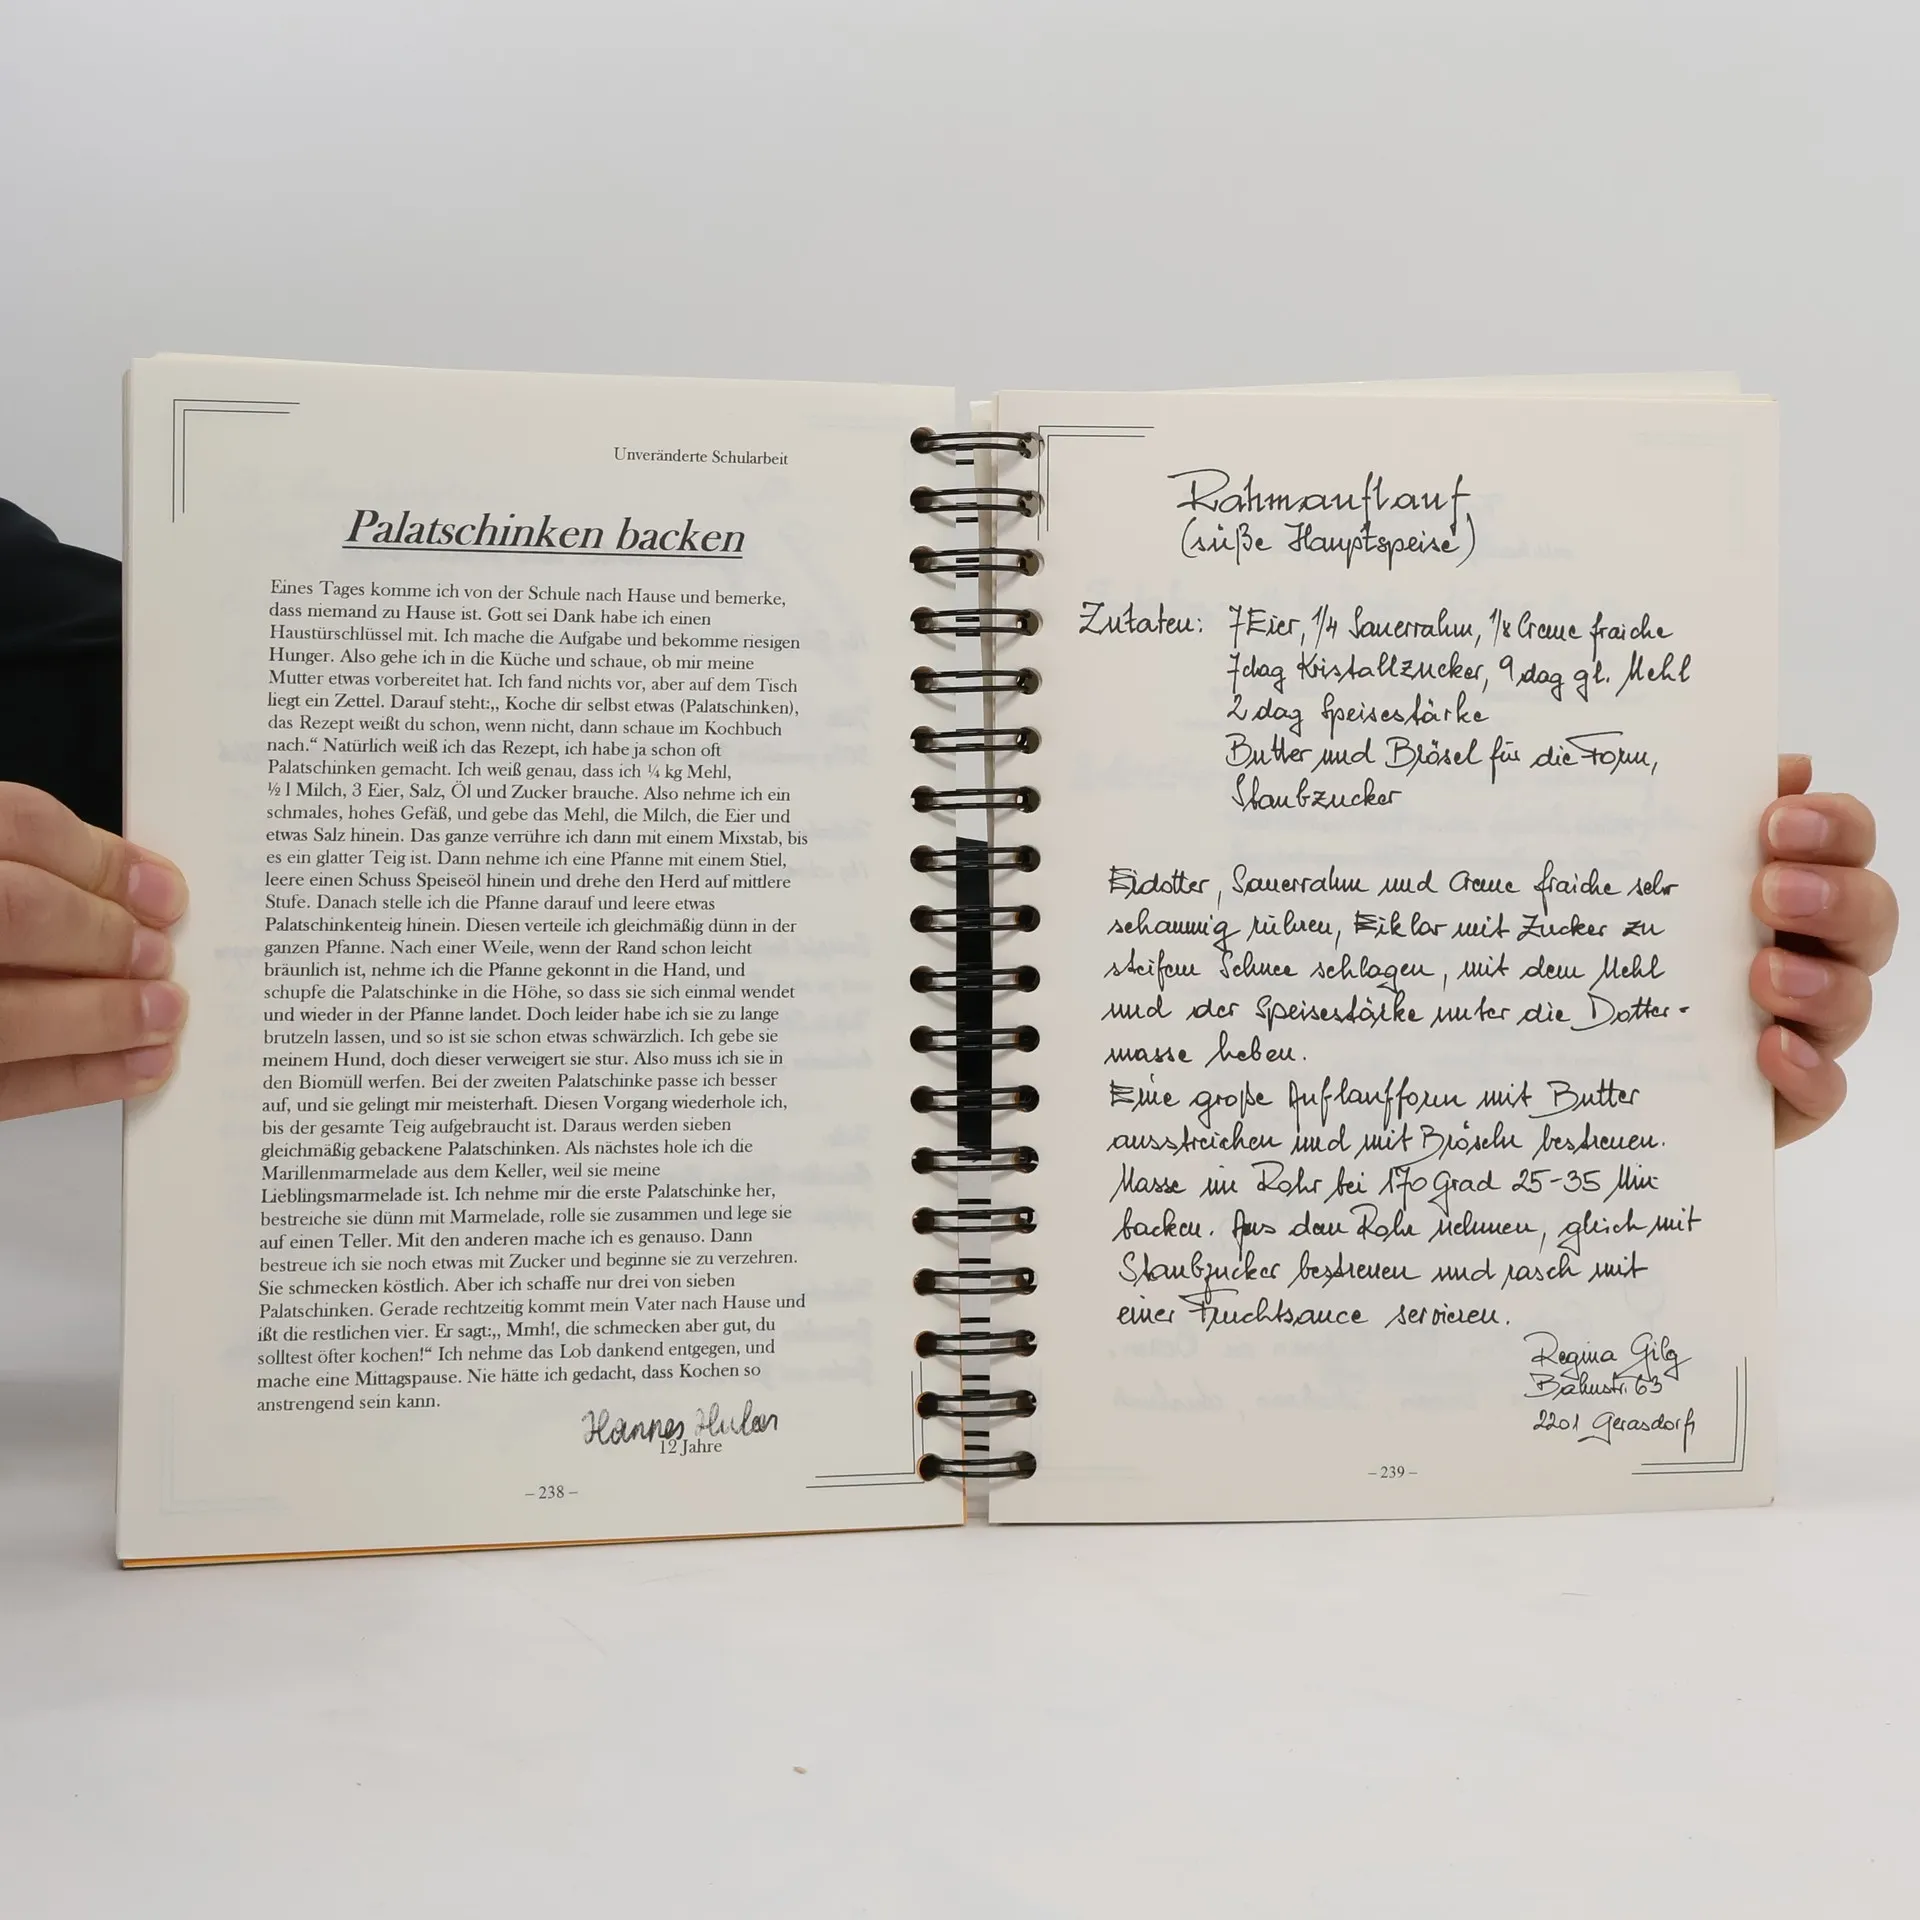 Unveränderte Schularbeit
Palatschinken backen
Eines Tages komme ich von der Schule nach Hause und bemerke,
dass niemand zu Hause ist. Gott sei Dank habe ich einen
Haustürschlüssel mit. Ich mache die Aufgabe und bekomme riesigen
Hunger. Also gehe ich in die Küche und schaue, ob mir meine
Mutter etwas vorbereitet hat. Ich fand nichts vor, aber auf dem Tisch
liegt ein Zettel. Darauf steht:,, Koche dir selbst etwas (Palatschinken),
das Rezept weißt du schon, wenn nicht, dann schaue im Kochbuch
nach.“ Natürlich weiß ich das Rezept, ich habe ja schon oft
Palatschinken gemacht. Ich weiß genau, dass ich ¼ kg Mehl,
½ l Milch, 3 Eier, Salz, Öl und Zucker brauche. Also nehme ich ein
schmales, hohes Gefäß, und gebe das Mehl, die Milch, die Eier und
etwas Salz hinein. Das ganze verrühre ich dann mit einem Mixstab, bis
es ein glatter Teig ist. Dann nehme ich eine Pfanne mit einem Stiel,
leere einen Schuss Speiseöl hinein und drehe den Herd auf mittlere
Stufe. Danach stelle ich die Pfanne darauf und leere etwas
Palatschinkenteig hinein. Diesen verteile ich gleichmäßig dünn in der
ganzen Pfanne. Nach einer Weile, wenn der Rand schon leicht
bräunlich ist, nehme ich die Pfanne gekonnt in die Hand, und
schupfe die Palatschinke in die Höhe, so dass sie sich einmal wendet
und wieder in der Pfanne landet. Doch leider habe ich sie zu lange
brutzeln lassen, und so ist sie schon etwas schwärzlich. Ich gebe sie
meinem Hund, doch dieser verweigert sie stur. Also muss ich sie in
den Biomüll werfen. Bei der zweiten Palatschinke passe ich besser
auf, und sie gelingt mir meisterhaft. Diesen Vorgang wiederhole ich,
bis der gesamte Teig aufgebraucht ist. Daraus werden sieben
gleichmäßig gebackene Palatschinken. Als nächstes hole ich die
Marillenmarmelade aus dem Keller, weil sie meine
Lieblingsmarmelade ist. Ich nehme mir die erste Palatschinke her,
bestreiche sie dünn mit Marmelade, rolle sie zusammen und lege sie
auf einen Teller. Mit den anderen mache ich es genauso. Dann
bestreue ich sie noch etwas mit Zucker und beginne sie zu verzehren.
Sie schmecken köstlich. Aber ich schaffe nur drei von sieben
Palatschinken. Gerade rechtzeitig kommt mein Vater nach Hause und
ißt die restlichen vier. Er sagt:,, Mmh!, die schmecken aber gut, du
solltest öfter kochen!“ Ich nehme das Lob dankend entgegen, und
mache eine Mittagspause. Nie hätte ich gedacht, dass Kochen so
anstrengend sein kann.
Hannes
12 Jahre
– 238 –
Rahmauflauf
(süße Hauptspeise)
Zutaten: 7 Eier, 1/4 Sauerrahm, 1/8 Creme fraiche
7 dag Kristallzucker, 9 dag gl. Mehl
2 dag Speisestärke
Butter und Brösel für die Form,
Staubzucker
Eidotter, Sauerrahm und Creme fraiche sehr
schaumig rühren, Eiklar mit Zucker zu
steifem Schnee schlagen, mit dem Mehl
und der Speisestärke unter die Dotter-
masse heben.
Eine große Auflaufform mit Butter
ausstreichen und mit Bröseln bestreuen.
Masse im Rohr bei 170 Grad 25-35 Min
backen. Aus dem Rohr nehmen, gleich mit
Staubzucker bestreuen und rasch mit
einer Fruchtsauce servieren.
Regina Gilg
Bahnstr. 63
2201 Gerasdorf
– 239 –